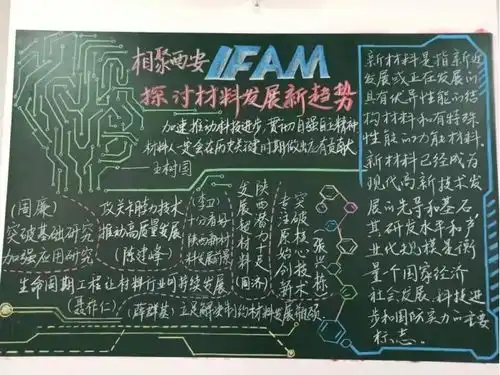 相聚西安 IFAM
探讨材料发展新趋势
加速推动科技进步,贯彻自强自立精神
材料人一定会在历史关键时期做出应有贡献
——王树国
(周廉)
突破基础研究
加强应用研究
攻关卡脖子技术
推动高质量发展
(陈建峰)
(李卫)
十分看好
陕西新材
料发展前景
陕西潜力是
发展超材料
(周济)
专注原始创新
突破核心技术
张兴栋
生命周期工程让材料行业可持续发展
(聂祚仁)
(薛群基)立足解决制约材料发展瓶颈
新材料是指新近
发展或正在发展的
具有优异性能的结
构材料和有特殊
性能的功能材料。
新材料已经成为
现代高新技术发
展的先导和基石
其研发水平和产
业化规模是衡
量一个国家经济
社会发展、科技进
步和国防实力的重要
标志。